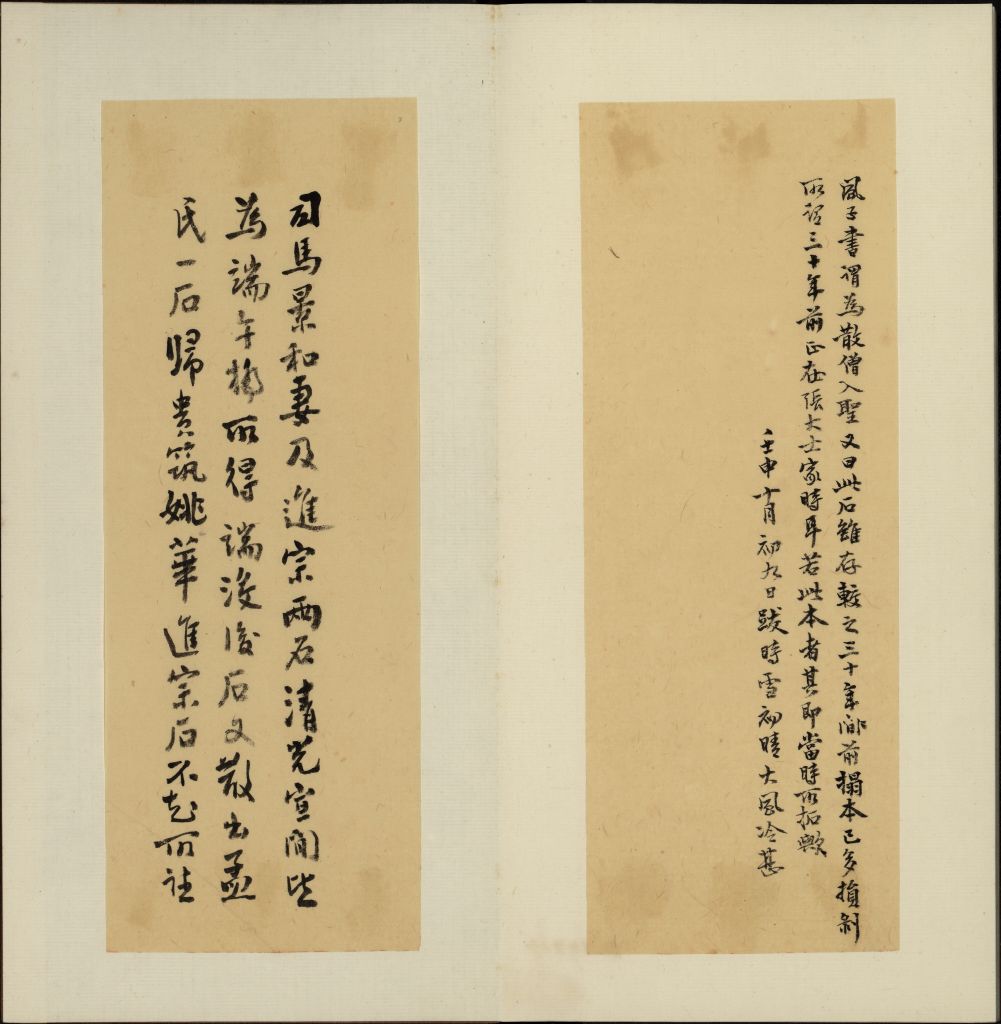 風子書謂為散僧入聖又曰此石雖存較之三十年前搨本已多損剝
所謂三十年前正在張大士家時耳若此本者其即當時所拓歟
壬申十月初九日跋時雪初晴大風冷甚
司馬景和妻及進宗兩石清光宣間皆
為端午橋所得端沒後石又散出孟
氏一石歸貴筑姚華進宗石不知所在